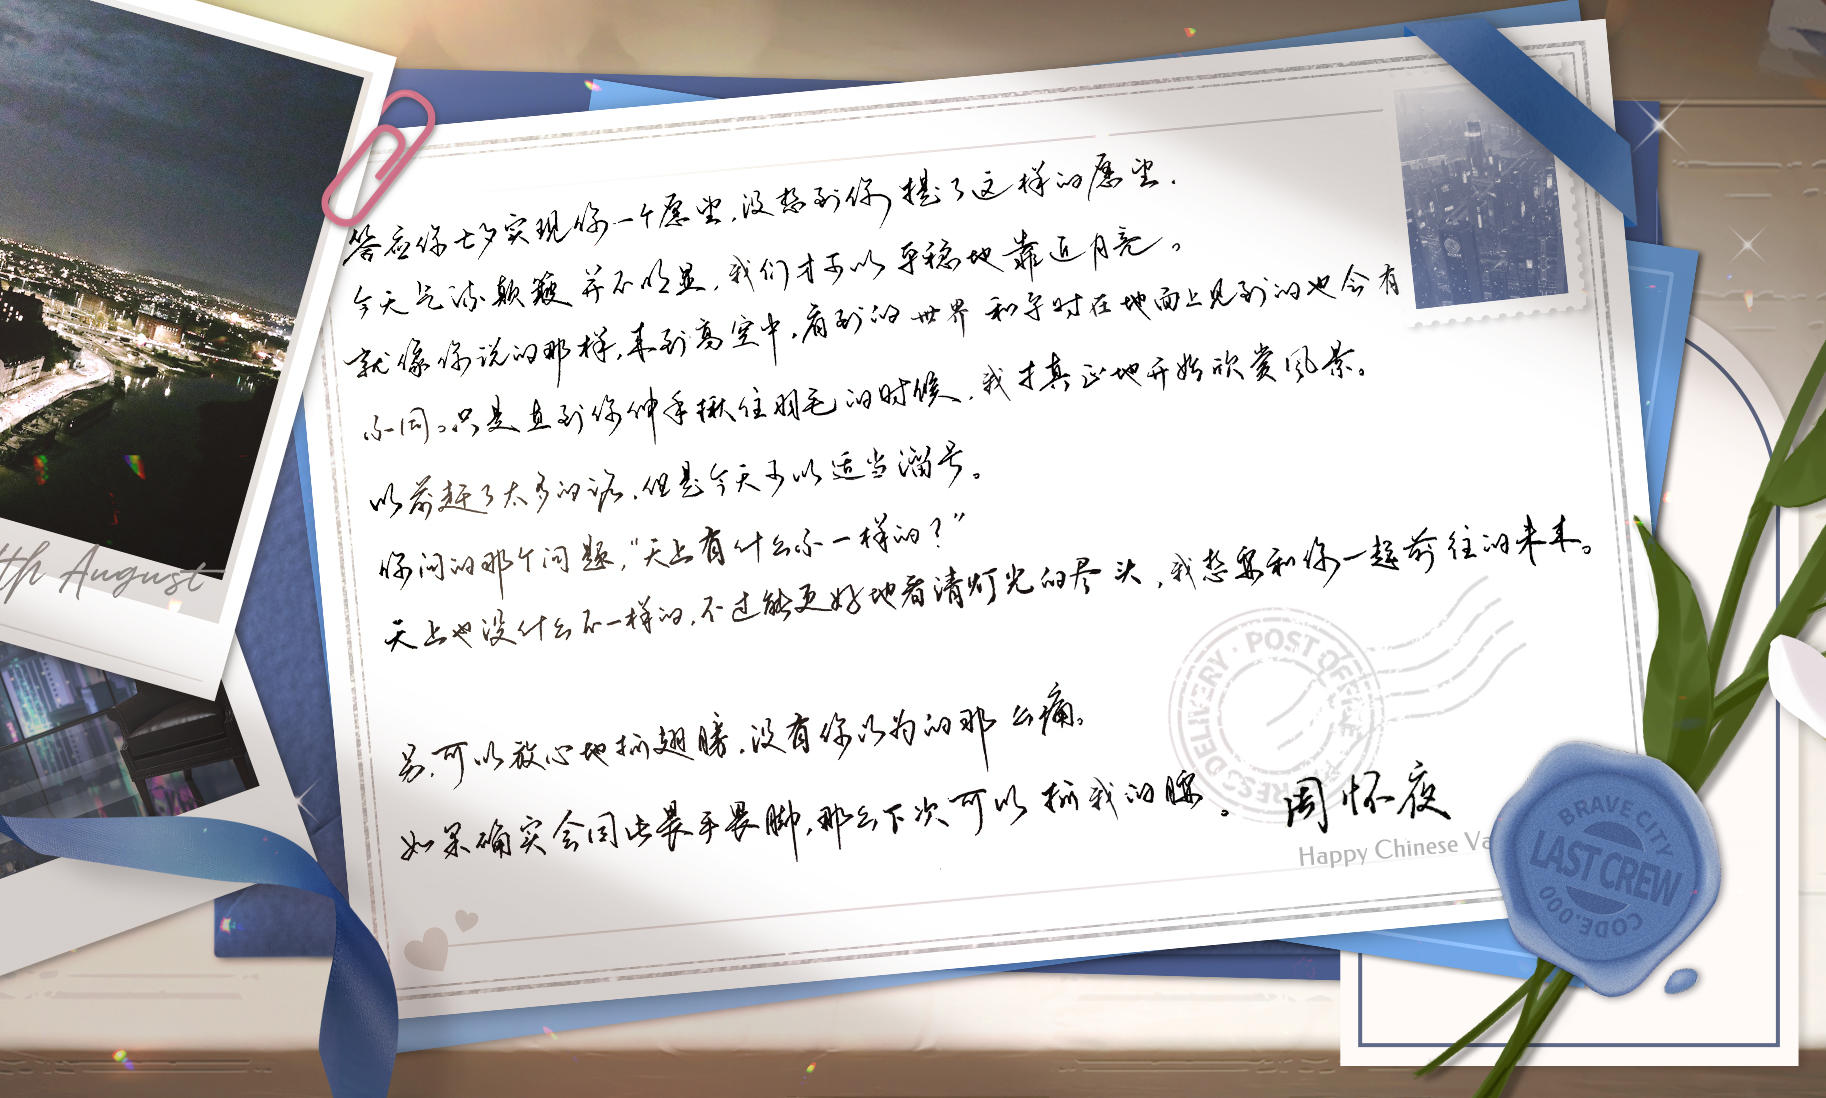 答应你七夕实现你一个愿望，没想到你提了这样的愿望。
今天气流颠簸并不明显，我们才可以平稳地靠近月亮。
就像你说的那样，来到高空中，看到的世界和平时在地面上见到的也会有
不同。只是直到你伸手揪住羽毛的时候，我才真正地开始欣赏风景。
以前赶了太多的路，但是今天可以适当溜号。
你问的那个问题，“天上有什么不一样的？”
天上也没什么不一样的，不过能更好地看清灯光的尽头，我想要和你一起前往的未来。
另，可以放心地抓翅膀，没有你以为的那么痛。
如果确实会因此畏手畏脚，那么下次可以抓我的腰。
周怀夜
Happy Chinese Va
th August
POST OFFICE
DELIVERY
BRAVE CITY
LAST CREW
CODE.000